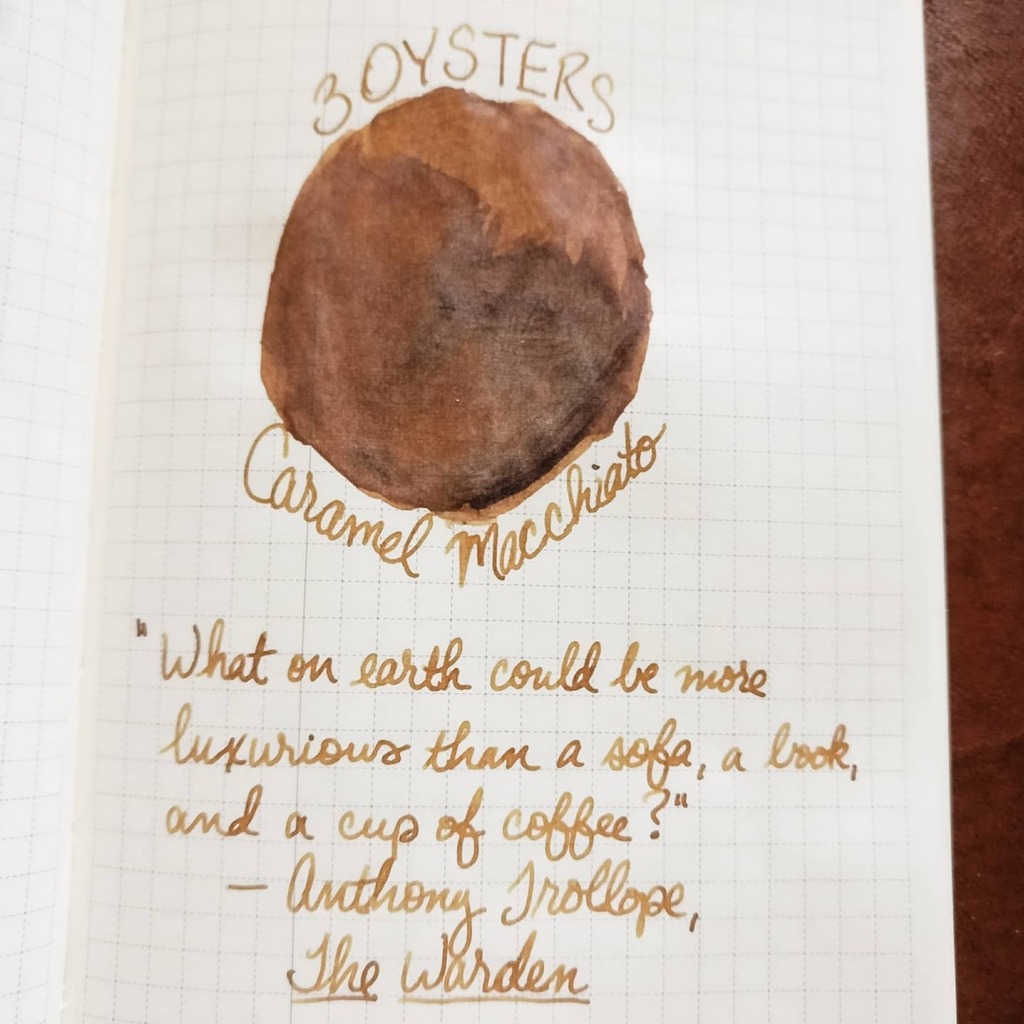 3 OYSTERS
Caramel Macchiato
"What on earth could be more
luxurious than a sofa, a book,
and a cup of coffee?"
— Anthony Trollope,
The Warden